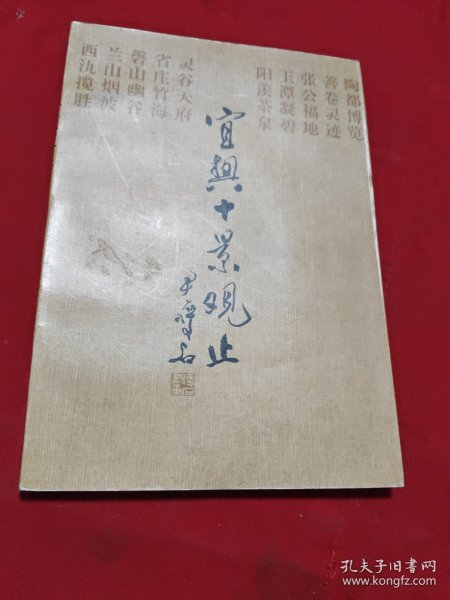 陶都博览
善卷灵迹
张公福地
玉潭凝碧
阳羡茶泉
灵谷天府
省庄竹海
磬山幽谷
兰山烟波
西氿揽胜
宜興十景观止
孔夫子旧书网
www.kongfz.com